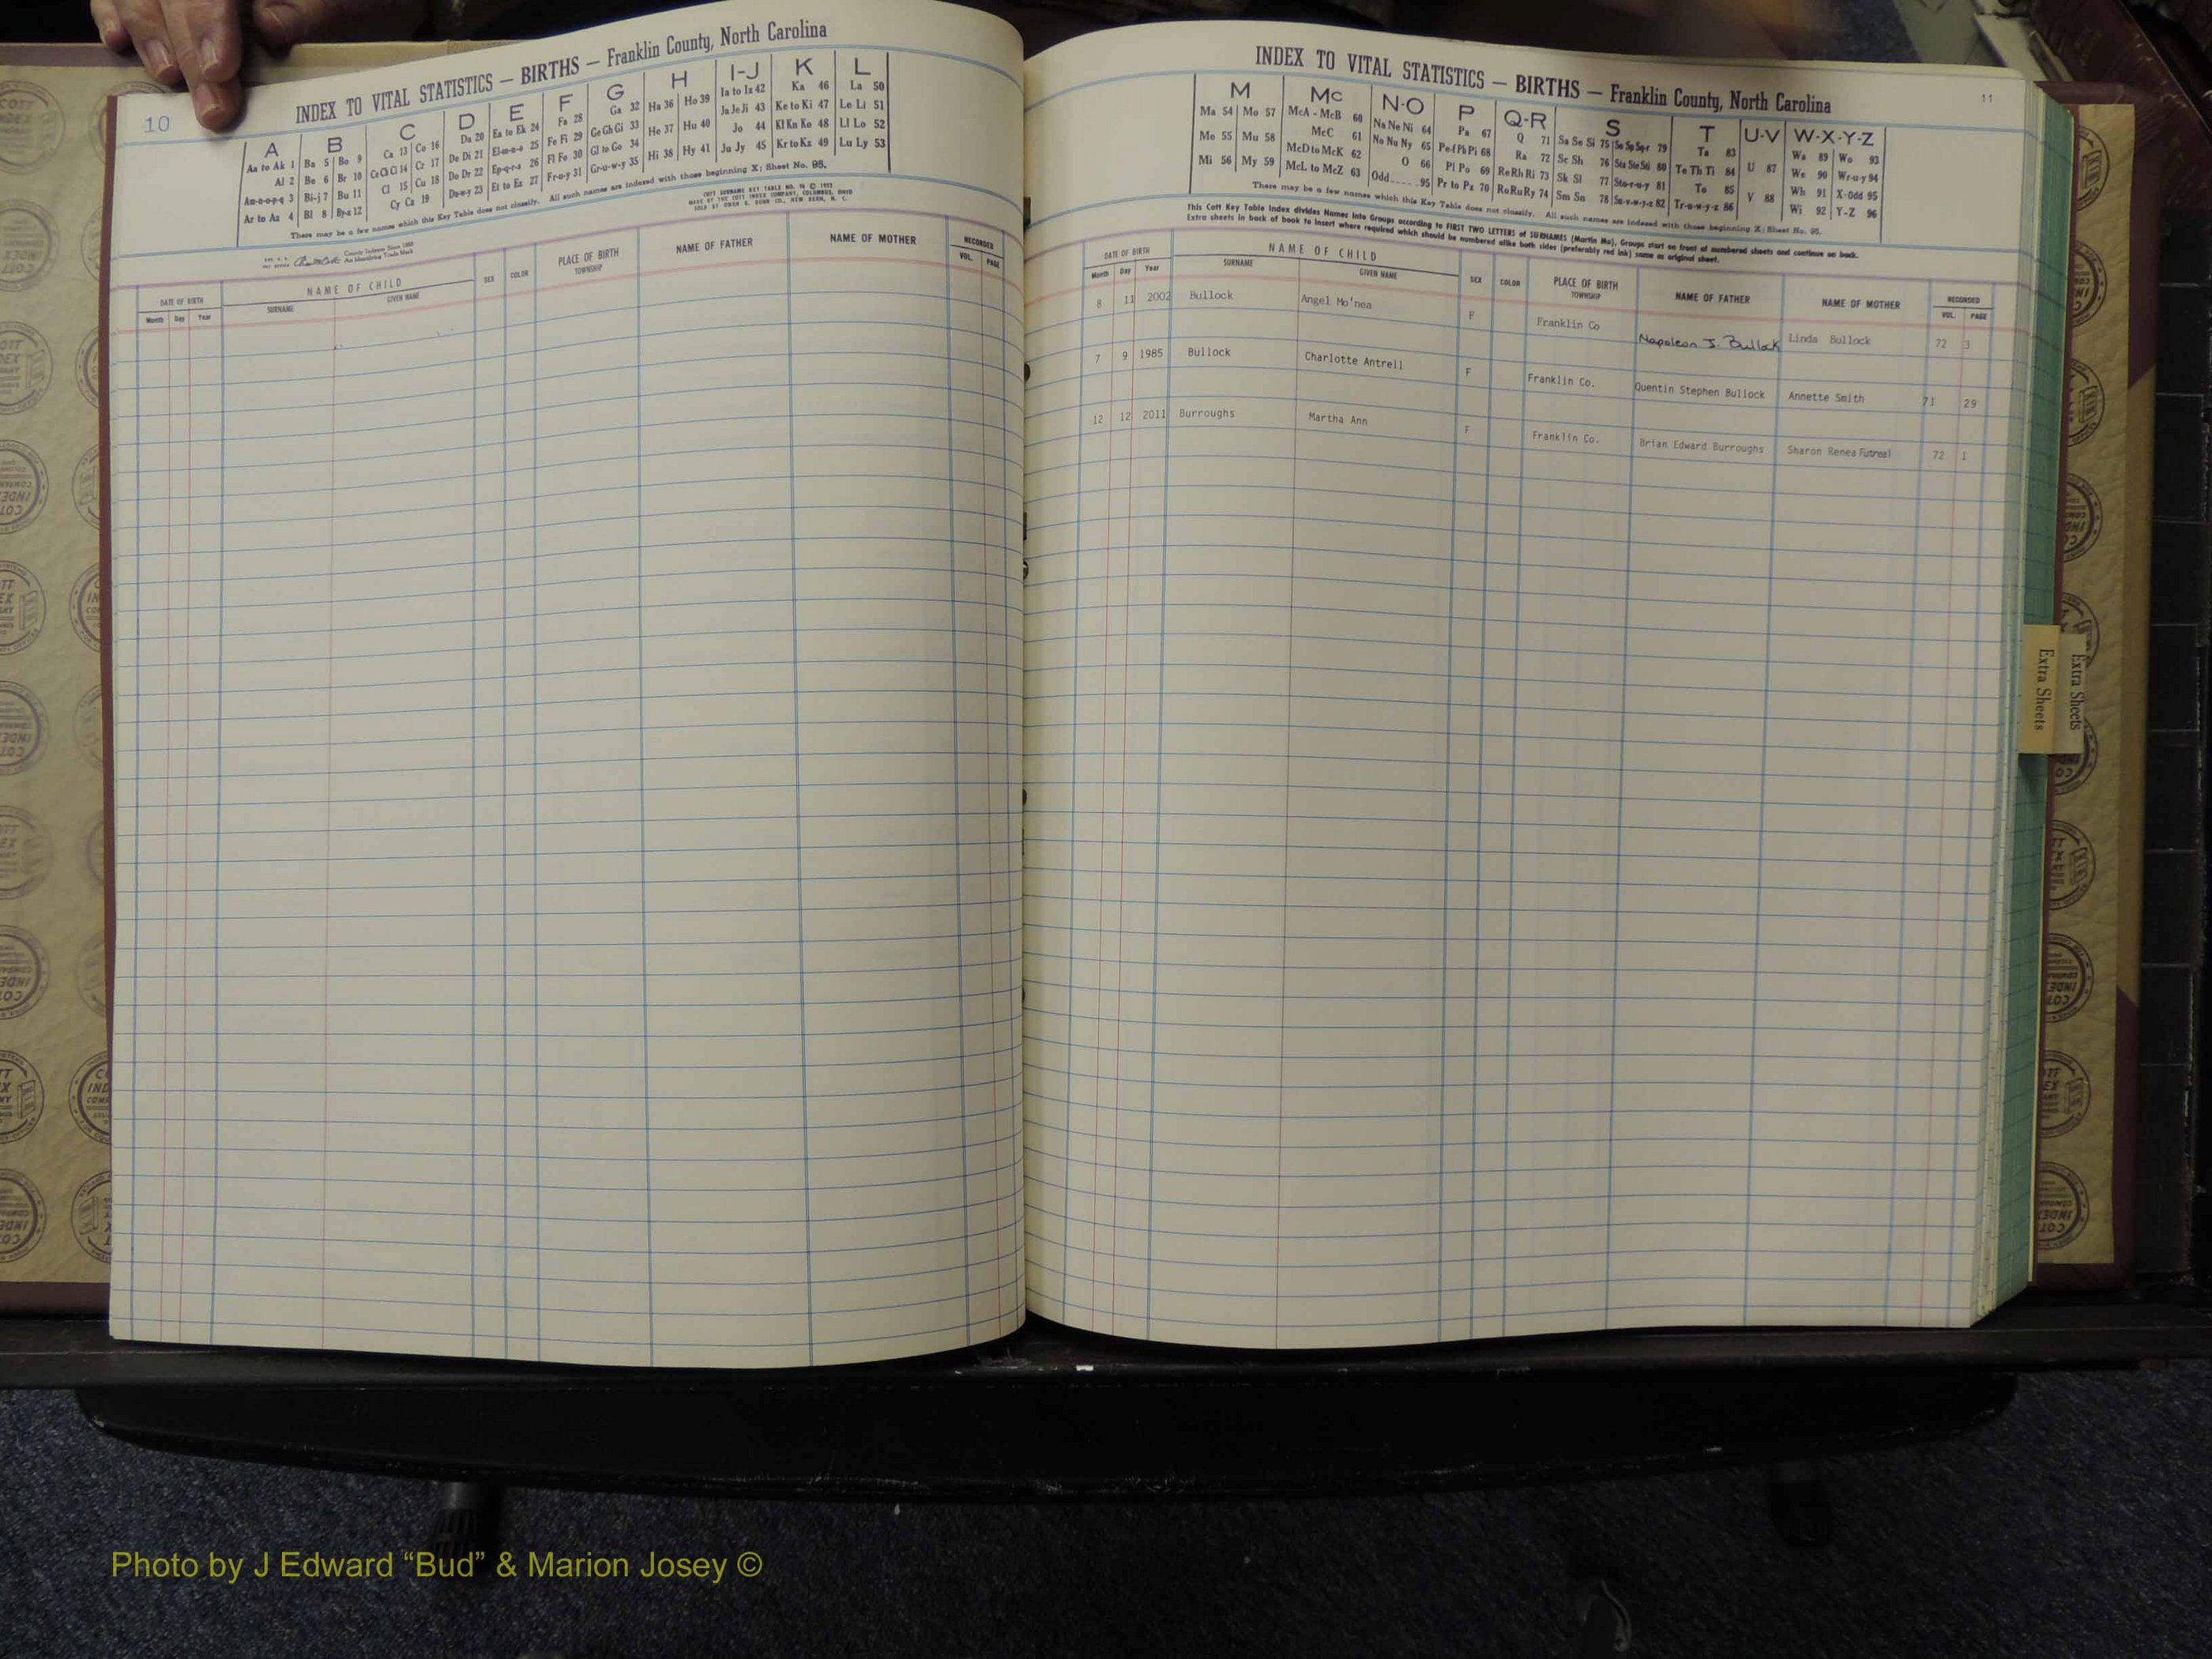 10
INDEX TO VITAL STATISTICS — BIRTHS — Franklin County, North Carolina
A B C D E F G H I-J K L
Aa to Ak 1 Ba 5 Bo 9 Ca 13 Co 16 Da 20 Ea to Ek 24 Fa 28 Ga 32 Ha 36 Ho 39 Ia to Iz 42 Ka 46 La 50
Al 2 Be 6 Br 10 Ce Ch Ci 14 Cr 17 De Di 21 El-m-n-o 25 Fe Fi 29 Ge Gh Gi 33 He 37 Hu 40 Ja Je Ji 43 Ke to Ki 47 Le Li 51
Am-n-o-p-q 3 Bi-j 7 Bu 11 Cl 15 Cu 18 Do Dr 22 Ep-q-r-s 26 Fl Fo 30 Gl to Go 34 Hi 38 Hy 41 Jo 44 Kl Kn Ko 48 Ll Lo 52
Ar to Az 4 Bl 8 By-z 12 Cy Cz 19 Du-w-y 23 Et to Ez 27 Fr-u-y 31 Gr-u-w-y 35 Ju Jy 45 Kr to Kz 49 Lu Ly 53
There may be a few names which this Key Table does not classify. All such names are indexed with those beginning X; Sheet No. 95.
COTT SURNAME KEY TABLE NO.
MADE BY THE COTT INDEX COMPANY, COLUMBUS, OHIO
SOLD BY OWEN G. DUNN CO., NEW BERN, N. C.
County Indexes Since 1888
An Identifying Trade Mark
DATE OF BIRTH NAME OF CHILD SEX COLOR PLACE OF BIRTH NAME OF FATHER NAME OF MOTHER RECORDED
Month Day Year SURNAME GIVEN NAME TOWNSHIP VOL. PAGE
11
INDEX TO VITAL STATISTICS — BIRTHS — Franklin County, North Carolina
M Mc N-O P Q-R S T U-V W-X-Y-Z
Ma 54 Mo 57 McA - McB 60 Na Ne Ni 64 Pa 67 Q 71 Sa Se Si 75 So Sp Sq-r 79 Ta 83 U 87 Wa 89 Wo 93
Me 55 Mu 58 McC 61 No Nu Ny 65 Pe-f Ph Pi 68 Ra 72 Sc Sh 76 Sta Ste Sti 80 Te Th Ti 84 V 88 We 90 Wr-u-y 94
Mi 56 My 59 McD to McK 62 O 66 Pl Po 69 Re Rh Ri 73 Sk Sl 77 Sto-r-u-y 81 To 85 Wh 91 X-Odd 95
McL to McZ 63 Odd 95 Pr to Pz 70 Ro Ru Ry 74 Sm Sn 78 Su-v-w-y-z 82 Tr-u-w-y-z 86 Wi 92 Y-Z 96
There may be a few names which this Key Table does not classify. All such names are indexed with those beginning X; Sheet No. 95.
This Cott Key Table Index divides Names into Groups according to FIRST TWO LETTERS of SURNAMES (Martin Ma), Groups start on front of numbered sheets and continue on back.
Extra sheets in back of book to insert where required which should be numbered alike both sides (preferably red ink) same as original sheet.
DATE OF BIRTH NAME OF CHILD SEX COLOR PLACE OF BIRTH NAME OF FATHER NAME OF MOTHER RECORDED
Month Day Year SURNAME GIVEN NAME TOWNSHIP VOL. PAGE
8 11 2002 Bullock Angel Mo'nea F Franklin Co Napolean J. Bullock Linda Bullock 72 3
7 9 1985 Bullock Charlotte Antrell F Franklin Co. Quentin Stephen Bullock Annette Smith 71 29
12 12 2011 Burroughs Martha Ann F Franklin Co. Brian Edward Burroughs Sharon Renea Futreal 72 1
Extra Sheets
Extra Sheets
Photo by J Edward “Bud” & Marion Josey ©